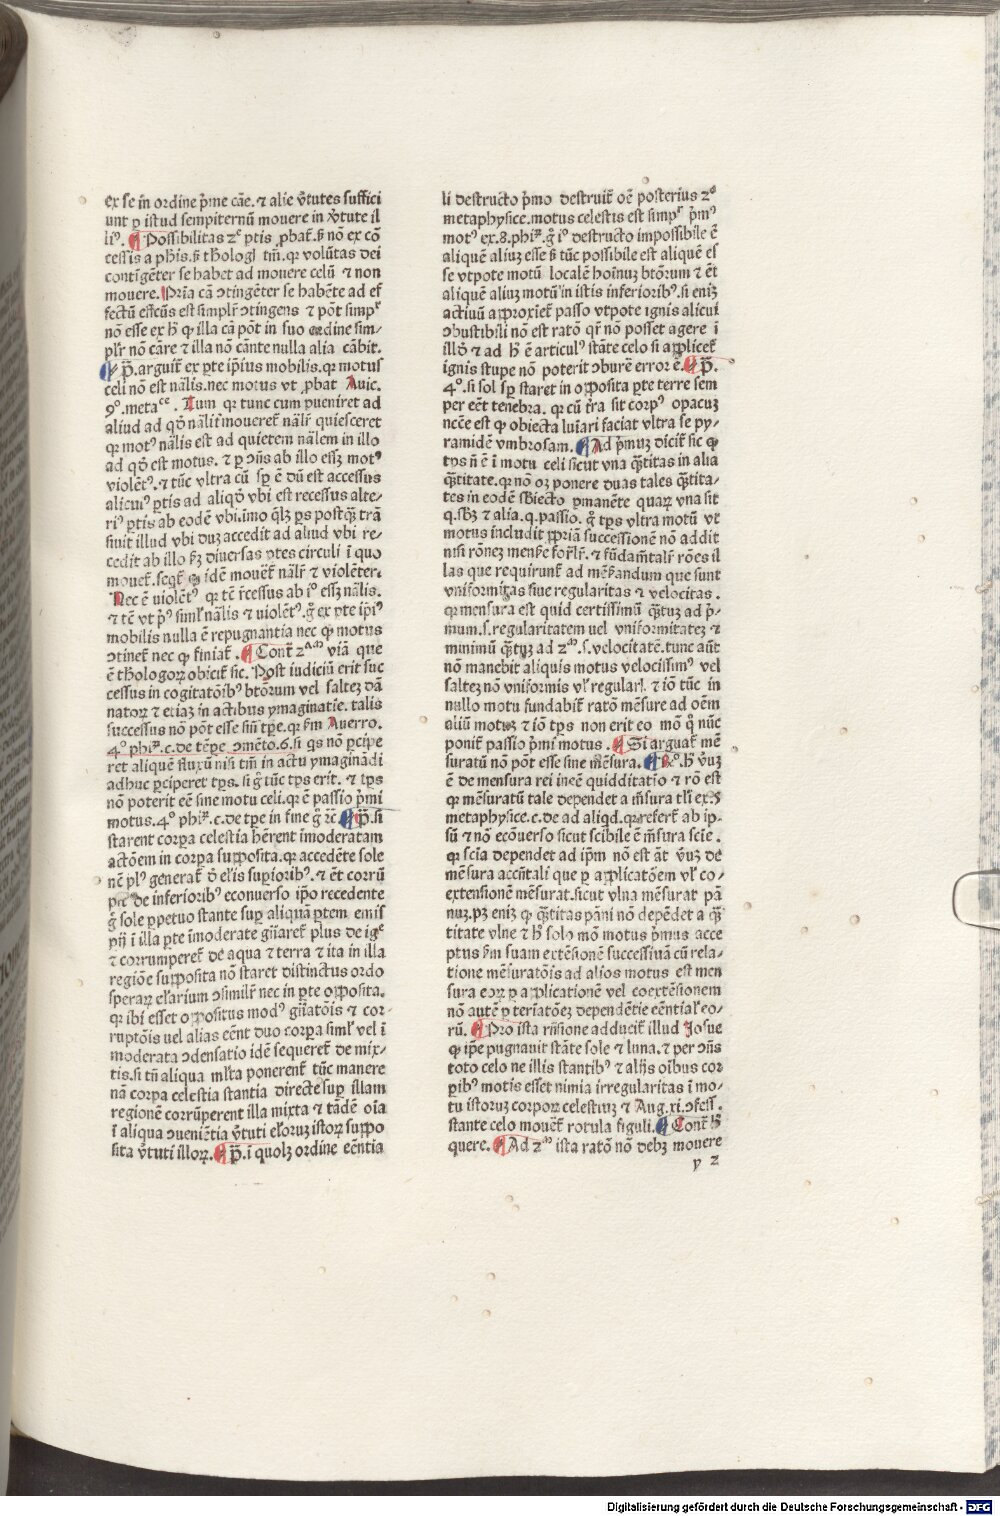 ex se in ordine p̄me cāe. ⁊ alie v̄tutes suffici
unt ꝑ istud sempiternū mouere in v̄tute il
liꝰ. ¶ Possibilitas 2ᵉ ꝑtis ꝓbat᷑. ẜ nō ex cō
cessis a phis. ẜ tħologi tm̄. qꝛ volūtas dei
contīgēter se habet ad mouere celū ⁊ non
mouere. Pria cā ↄtingēter se habēte ad ef
fectū effcūs est simplr̄ ↄtingens ⁊ pōt simpʳ
nō esse ex ħ ꝙ illa cā pōt in suo ordine sim⸗
plr̄ nō cāre ⁊ illa nō cānte nulla alia cābit.
¶ P̄. arguit᷑ ex ꝑte ip̄ius mobilis. qꝛ motus
celi nō est nālis. nec motus vt ꝓbat Auic.
9ᵒ. metaᶜᵉ. Tum qꝛ tunc cum ꝑueniret ad
aliud ad qđ nālit᷑ moueret᷑ nālr̄ quiesceret
qꝛ motꝰ nālis est ad quietem nālem in illo
ad qđ est motus. ⁊ ꝑ ↄn̄s ab illo essꝫ motꝰ
violētꝰ. ⁊ tūc vltra cū sꝑ ē dū est accessus
alicuiꝰ ꝑtis ad aliqđ vbi est recessus alte⸗
riꝰ ꝑtis ab eodē vbi. imo q̄lꝫ ꝑs postq̄ꝫ trā
siuit illud vbi duꝫ accedit ad aliud vbi re⸗
cedit ab illo ẜꝫ diuersas ꝑtes circuli ī quo
mouet᷑. seqt᷑ ꝙ idē mouēt᷑ nālr̄ ⁊ violēter.
Nec ē violētꝰ qꝛ tē r̄cessus ab iᵒ essꝫ nālis.
⁊ tē vt pꝰ siml̄ nālis ⁊ uiolētꝰ. g̊ ex ꝑte ip̄iꝰ
mobilis nulla ē repugnantia nec ꝙ motus
ↄtinet᷑ nec ꝙ finiat᷑. ¶ Cont᷑ 2ᵃᵐ viā que
ē tħologoꝝ obicit᷑ sic. Post iudiciū erit suc
cessus in cogitatōibꝰ btōrum vel saltēz dā
natoꝝ ⁊ etiaꝫ in actibus ymaginatie. talis
successus nō pōt esse sin̄ tꝑe. qꝛ ẜm Auerro.
4ᵒ phiꝝ. c. de tēꝑe ↄmēto. 6. si qs nō ꝑcipe
ret aliquē fluxū nisi tm̄ in actu ymaginādi
adhuc ꝑciperet tꝑs. si g̊ tūc tꝑs erit. ⁊ tꝑs
nō poterit eē sine motu celi. qꝛ ē passio p̄mi
motus. 4ᵒ phiꝝ. c. de tꝑe in fine g̊ ⁊c̄. ¶ P̄. si
starent corꝑa celestia hērent īmoderatam
actōem in corꝑa supposita. qꝛ accedēte sole
nē plꝰ generat᷑ ō el̄is suꝑioribꝰ. ⁊ ēt corrū
pit᷑ de inferioribꝰ econuerso ip̄o recedente
g̊ sole ꝑpetuo stante suꝑ aliquā ꝑtem emis
pij ī illa ꝑte īmoderate gn̄aret᷑ plus de igᵉ
⁊ corrumperet᷑ de aqua ⁊ terra ⁊ ita in illa
regiōe supposita nō staret distinctus ordo
speraꝝ el̄arium ↄsimilr̄ nec in ꝑte opposita.
qꝛ ibi esset oppositus modꝰ gn̄atōis ⁊ cor⸗
ruptōis uel alias eēnt duo corꝑa siml̄ vel ī
moderata ↄdensatio idē sequeret᷑ de mix⸗
tis. si tn̄ aliqua mixta ponerent᷑ tūc manere
nā corꝑa celestia stantia directe suꝑ illam
regionē corrūperent illa mixta ⁊ tādē oīa
ī aliqua ↄueniētia v̄tuti el̄oruꝫ istoꝝ suppo
sita v̄tuti illoꝝ. ¶ P̄. ī quolꝫ ordine eēntia
li destructo p̄mo destruit᷑ oē posterius 2ᵉ
metaphysice. motus celestis est simpʳ p̄mꝰ
motꝰ ex. 8. phiꝝ. g̊ iᵒ destructo impossibile ē
aliquē aliuꝫ esse ẜ tūc possibile est aliquē es
se vtpote motū localē hoīnuꝫ btōrum ⁊ ēt
aliquē aliuꝫ motū in istis inferioribꝰ. si enīꝫ
actiuū approxīet᷑ passo vtpote ignis alicui
ↄbustibili nō est ratō qr̄ nō posset agere ī
illđ ⁊ ad ħ ē articulꝰ stāte celo si applicet᷑
ignis stupe nō poterit ↄburē error ē. ¶ P̄.
4ᵒ. si sol sꝑ staret in opposita ꝑte terre sem
per eēt tenebra. qꝛ cū tr̄a sit corpꝰ opacuꝫ
nc̄ce est ꝙ obiecta luīari faciat vltra se py⸗
ramidē vmbrosam. ¶ Ad p̄muꝫ dicit᷑ sic ꝙ
tꝑs n̄ ē ī motu celi sicut vna q̄titas in alia
q̄titate. qꝛ nō oꝫ ponere duas tales q̄tita⸗
tes in eodē sb̄iecto ꝑmanēte quaꝝ vna sit
q. sb̄ꝫ ⁊ alia. q. passio. g̊ tꝑs vltra motū vt᷑
motus includit ꝓpriā successionē nō addit
nisi rōneꝫ mens̄e for̄lr̄. ⁊ fūdam̄talr̄ rōes il
las que requirunt᷑ ad mēs̄andum que sunt
vniformitas siue regularitas ⁊ velocitas.
qꝛ mensura est quid certissimū q̄tuꝫ ad p̄⸗
mum. s. regularitatem uel vniformitateꝫ ⁊
minimū q̄tuꝫ ad 2ᵐ. s. velocitatē. tunc aūt
nō manebit aliquis motus velocissimꝰ vel
salteꝫ nō vniformis vl̄ regulari. ⁊ iō tūc in
nullo motu fundabit᷑ ratō mēsure ad oēm
aliū motuꝫ ⁊ iō tꝑs non erit eo mō q̊ nūc
ponit᷑ passio p̄mi motus. ¶ Si arguat᷑ mē
suratū nō pōt esse sine mēsura. ¶ R̄ᵒ. ħ v̄uꝫ
ē de mensura rei ineē quidditatio ⁊ rō est
qꝛ mēsuratū tale dependet a m̄sura tl̄i ex. 5
metaphysice. c. de ad aliqđ. qꝛ refert᷑ ab ip⸗
sū ⁊ nō ecōuerso sicut scibile ē m̄sura scīe.
qꝛ scīa dependet ad ip̄m nō est āt v̄uꝫ de
mēsura accn̄tali que ꝑ applicatōem vl̄ co⸗
extensionē mēsurat. sicut vlna mēsurat pā
nuꝫ. pꝫ eniꝫ ꝙ q̄titas pāni nō depēdet a q̄
titate vlne ⁊ hꝰ solo mō motus p̄mus acce
ptus ẜm suam extēsionē successiuā cū rela⸗
tione mēsuratōis ad alios motus est men
sura eoꝝ ꝑ applicationē vel coextēsionem
nō autē ꝑ teriatōeꝫ dependētie eēntial̄ eo⸗
rū. ¶ Pro ista rn̄sione adducit᷑ illud Josue
ꝙ ip̄e pugnauit stāte sole ⁊ luna. ⁊ per ↄn̄s
toto celo ne illis stantibꝰ ⁊ alijs oībus cor
ꝑibꝰ motis esset nimia irregularitas ī mo⸗
tu istoruꝫ corpoꝝ celestiuꝫ ⁊ Aug. xi. ↄfess.
stante celo mouēt᷑ rotula figuli. ¶ Cont᷑ ħ
quere. ¶ Ad 2ᵐ ista ratō nō debꝫ mouere
y 2
Digitalisierung gefördert durch die Deutsche Forschungsgemeinschaft - DFG